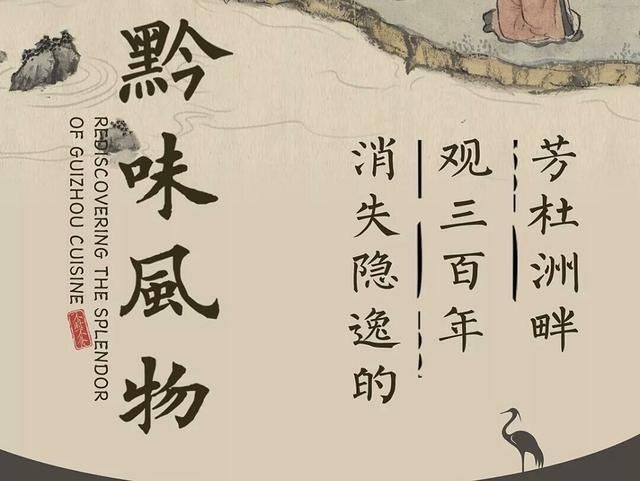 芳杜洲畔
观三百年
消失隐逸的
黔味風物
REDISCOVERING THE SPLENDOR
OF GUIZHOU CUISINE